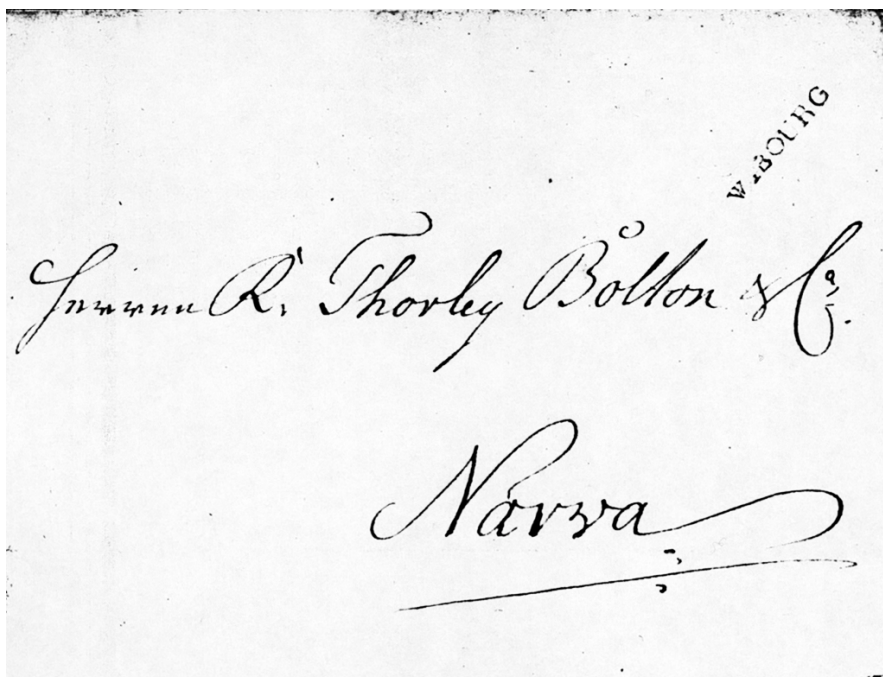 WIBOURG
Herren R. Thorley Bolton & Co.
Narva